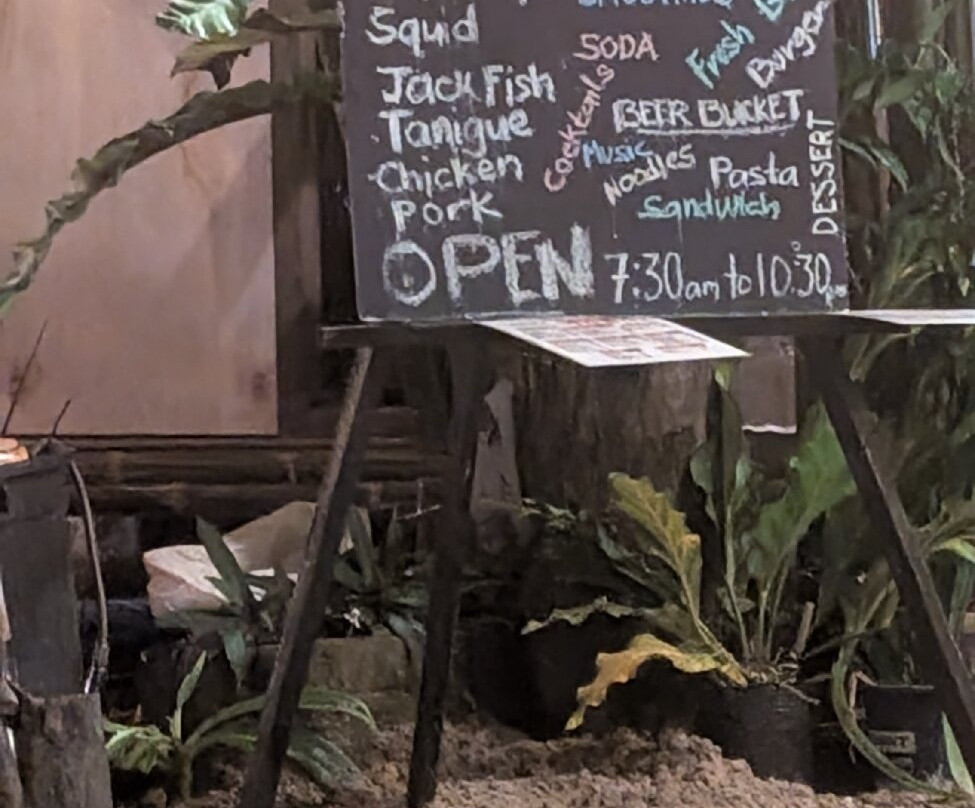 Squid
Jack Fish
Tanigue
Chicken
Pork
SODA
Fresh
Cocktails
BEER BUCKET
Music
Noodles
Pasta
Sandwich
DESSERT
OPEN 7:30am to 10:30